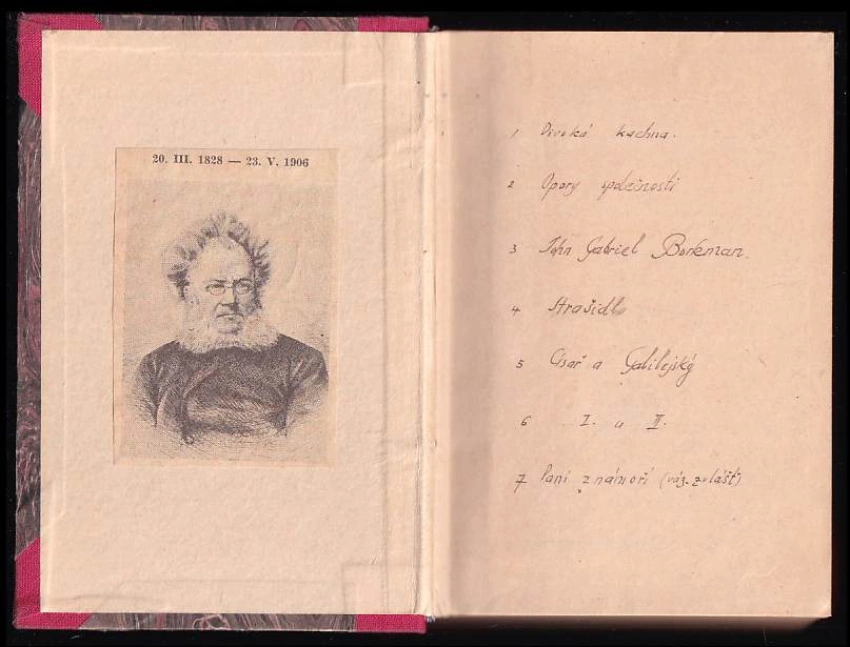 20. III. 1828 — 23. V. 1906
1 Divoká kachna.
2 Opory společnosti
3 John Gabriel Borkman.
4 Strašidla
5 Císař a Galilejský
6 I. a II.
7 Paní z námoří (váz. zvlášť)